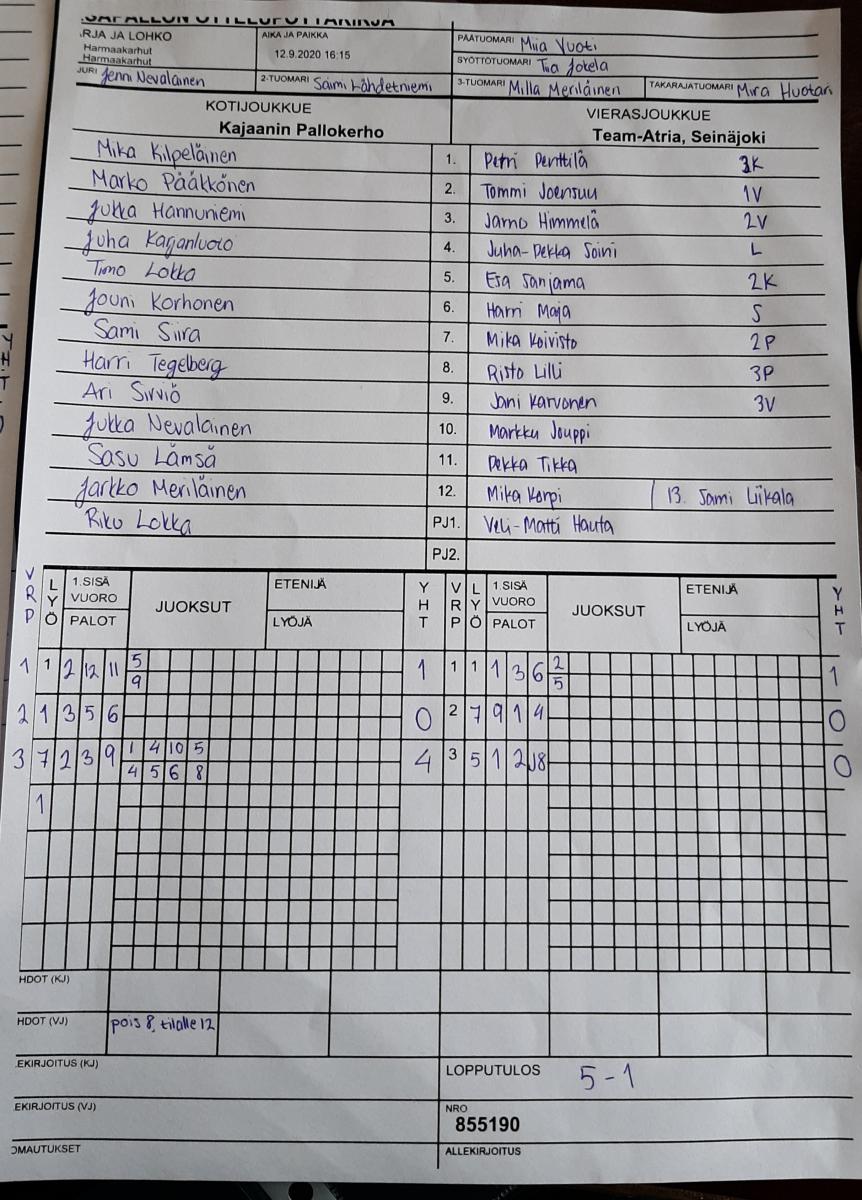 SAPALLON OTTELUPÖYTÄKIRJA
RJA JA LOHKO
Harmaakarhut
Harmaakarhut
AIKA JA PAIKKA
12.9.2020 16:15
PÄÄTUOMARI Miia Vuoti
SYÖTTÖTUOMARI Tia Jokela
JURI Jenni Nevalainen
2-TUOMARI Saimi Lähdetniemi
3-TUOMARI Milla Meriläinen
TAKARAJATUOMARI Mira Huotari
KOTIJOUKKUE
Kajaanin Pallokerho
VIERASJOUKKUE
Team-Atria, Seinäjoki
Mika Kilpeläinen 1. Petri Penttilä 3K
Marko Pääkkönen 2. Tommi Joensuu 1V
Jukka Hannuniemi 3. Jarno Himmelä 2V
Juha Karjanluoto 4. Juha-Pekka Soini L
Timo Lokka 5. Esa Sanjama 2K
Jouni Korhonen 6. Harri Maja S
Sami Siira 7. Mika Koivisto 2P
Harri Tegelberg 8. Risto Lilli 3P
Ari Sirviö 9. Jani Karvonen 3V
Jukka Nevalainen 10. Markku Jouppi
Sasu Lämsä 11. Pekka Tikka
Jarkko Meriläinen 12. Mika Korpi | 13. Sami Liikala
Riku Lokka PJ1. Veli-Matti Hauta
PJ2.
VRP LYÖ 1.SISÄ VUORO PALOT JUOKSUT ETENIJÄ LYÖJÄ YHT VRP LYÖ 1.SISÄ VUORO PALOT JUOKSUT ETENIJÄ LYÖJÄ YHT
1 1 2 12 11 5 1 1 1 1 3 6 2 1
9 5
2 1 3 5 6 0 2 7 9 1 4 0
3 7 2 3 9 1 4 10 5 4 3 5 1 2 J8 0
4 5 6 8
1
HDOT (KJ)
HDOT (VJ) pois 8, tilalle 12
EKIRJOITUS (KJ)
LOPPUTULOS 5-1
EKIRJOITUS (VJ)
NRO
855190
OMAUTUKSET
ALLEKIRJOITUS